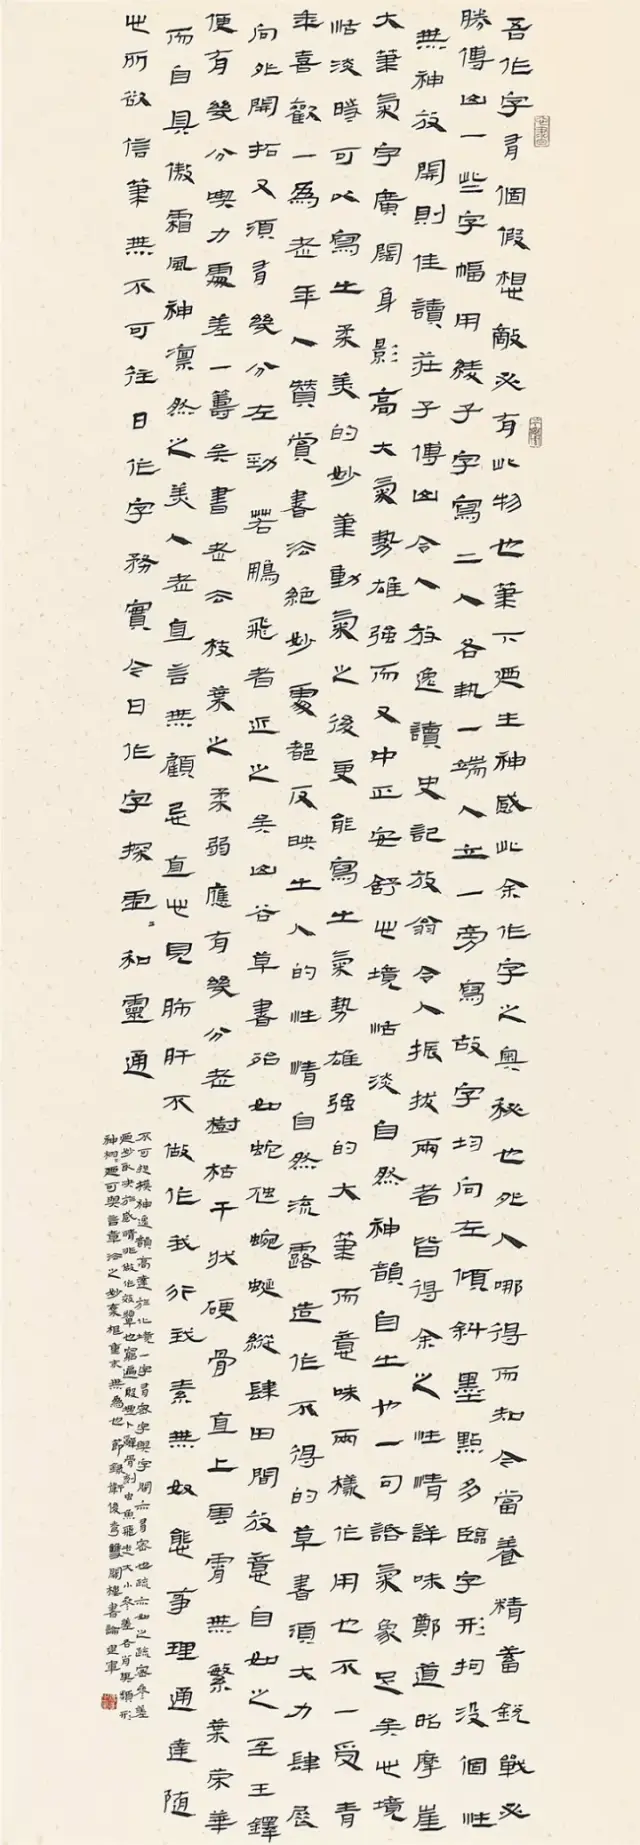 吾作字有個假想敵必有此物也筆下迺生神感此余作字之奧秘也死人哪得而知今當養精蓄銳戰必
勝傅山一些字幅用綾子字寫二人各執一端人立一旁寫故字均向左傾斜墨點多臨字形拘沒個性
無神放開則佳讀莊子傅山令人放逸讀史記放翁令人振拔兩者皆得余之性情詳味鄭道昭摩崖
大筆氣字廣闊身影高大氣勢雄強而又中正安舒也境恬淡自然神韻自生也一句話氣象足矣也境
恬淡時可以寫出柔美的妙筆動氣之後更能寫出氣勢雄強的大筆而意味兩樣作用也不一受青
年喜歡一為老年人贊賞書法絕妙處都反映出人的性情自然流露造作不得的草書須大力肆展
向外開拓又須有幾分左勁若鵬飛者近之矣山谷草書殆如蛇虺蜿蜒縱肆田間放意自如之至王鐸
便有幾分喫力處差一籌矣書老公枝葉之柔弱應有幾分老樹枯干狀硬骨直上雲霄無繁葉榮華
而自具傲霜風神凜然之美人老直言無顧忌直也見肺肝不做作我行我素無奴態事理通達随
也所欲信筆無不可往日作字務實今日作字探靈和靈通
不可捉摸神逸韻高達於化境一字有容字與字間亦有容也疏亦如之疏密参差
神柯迺可與言章法之妙素相重不無為也節錄衛俊秀雙閣樓書論建軍